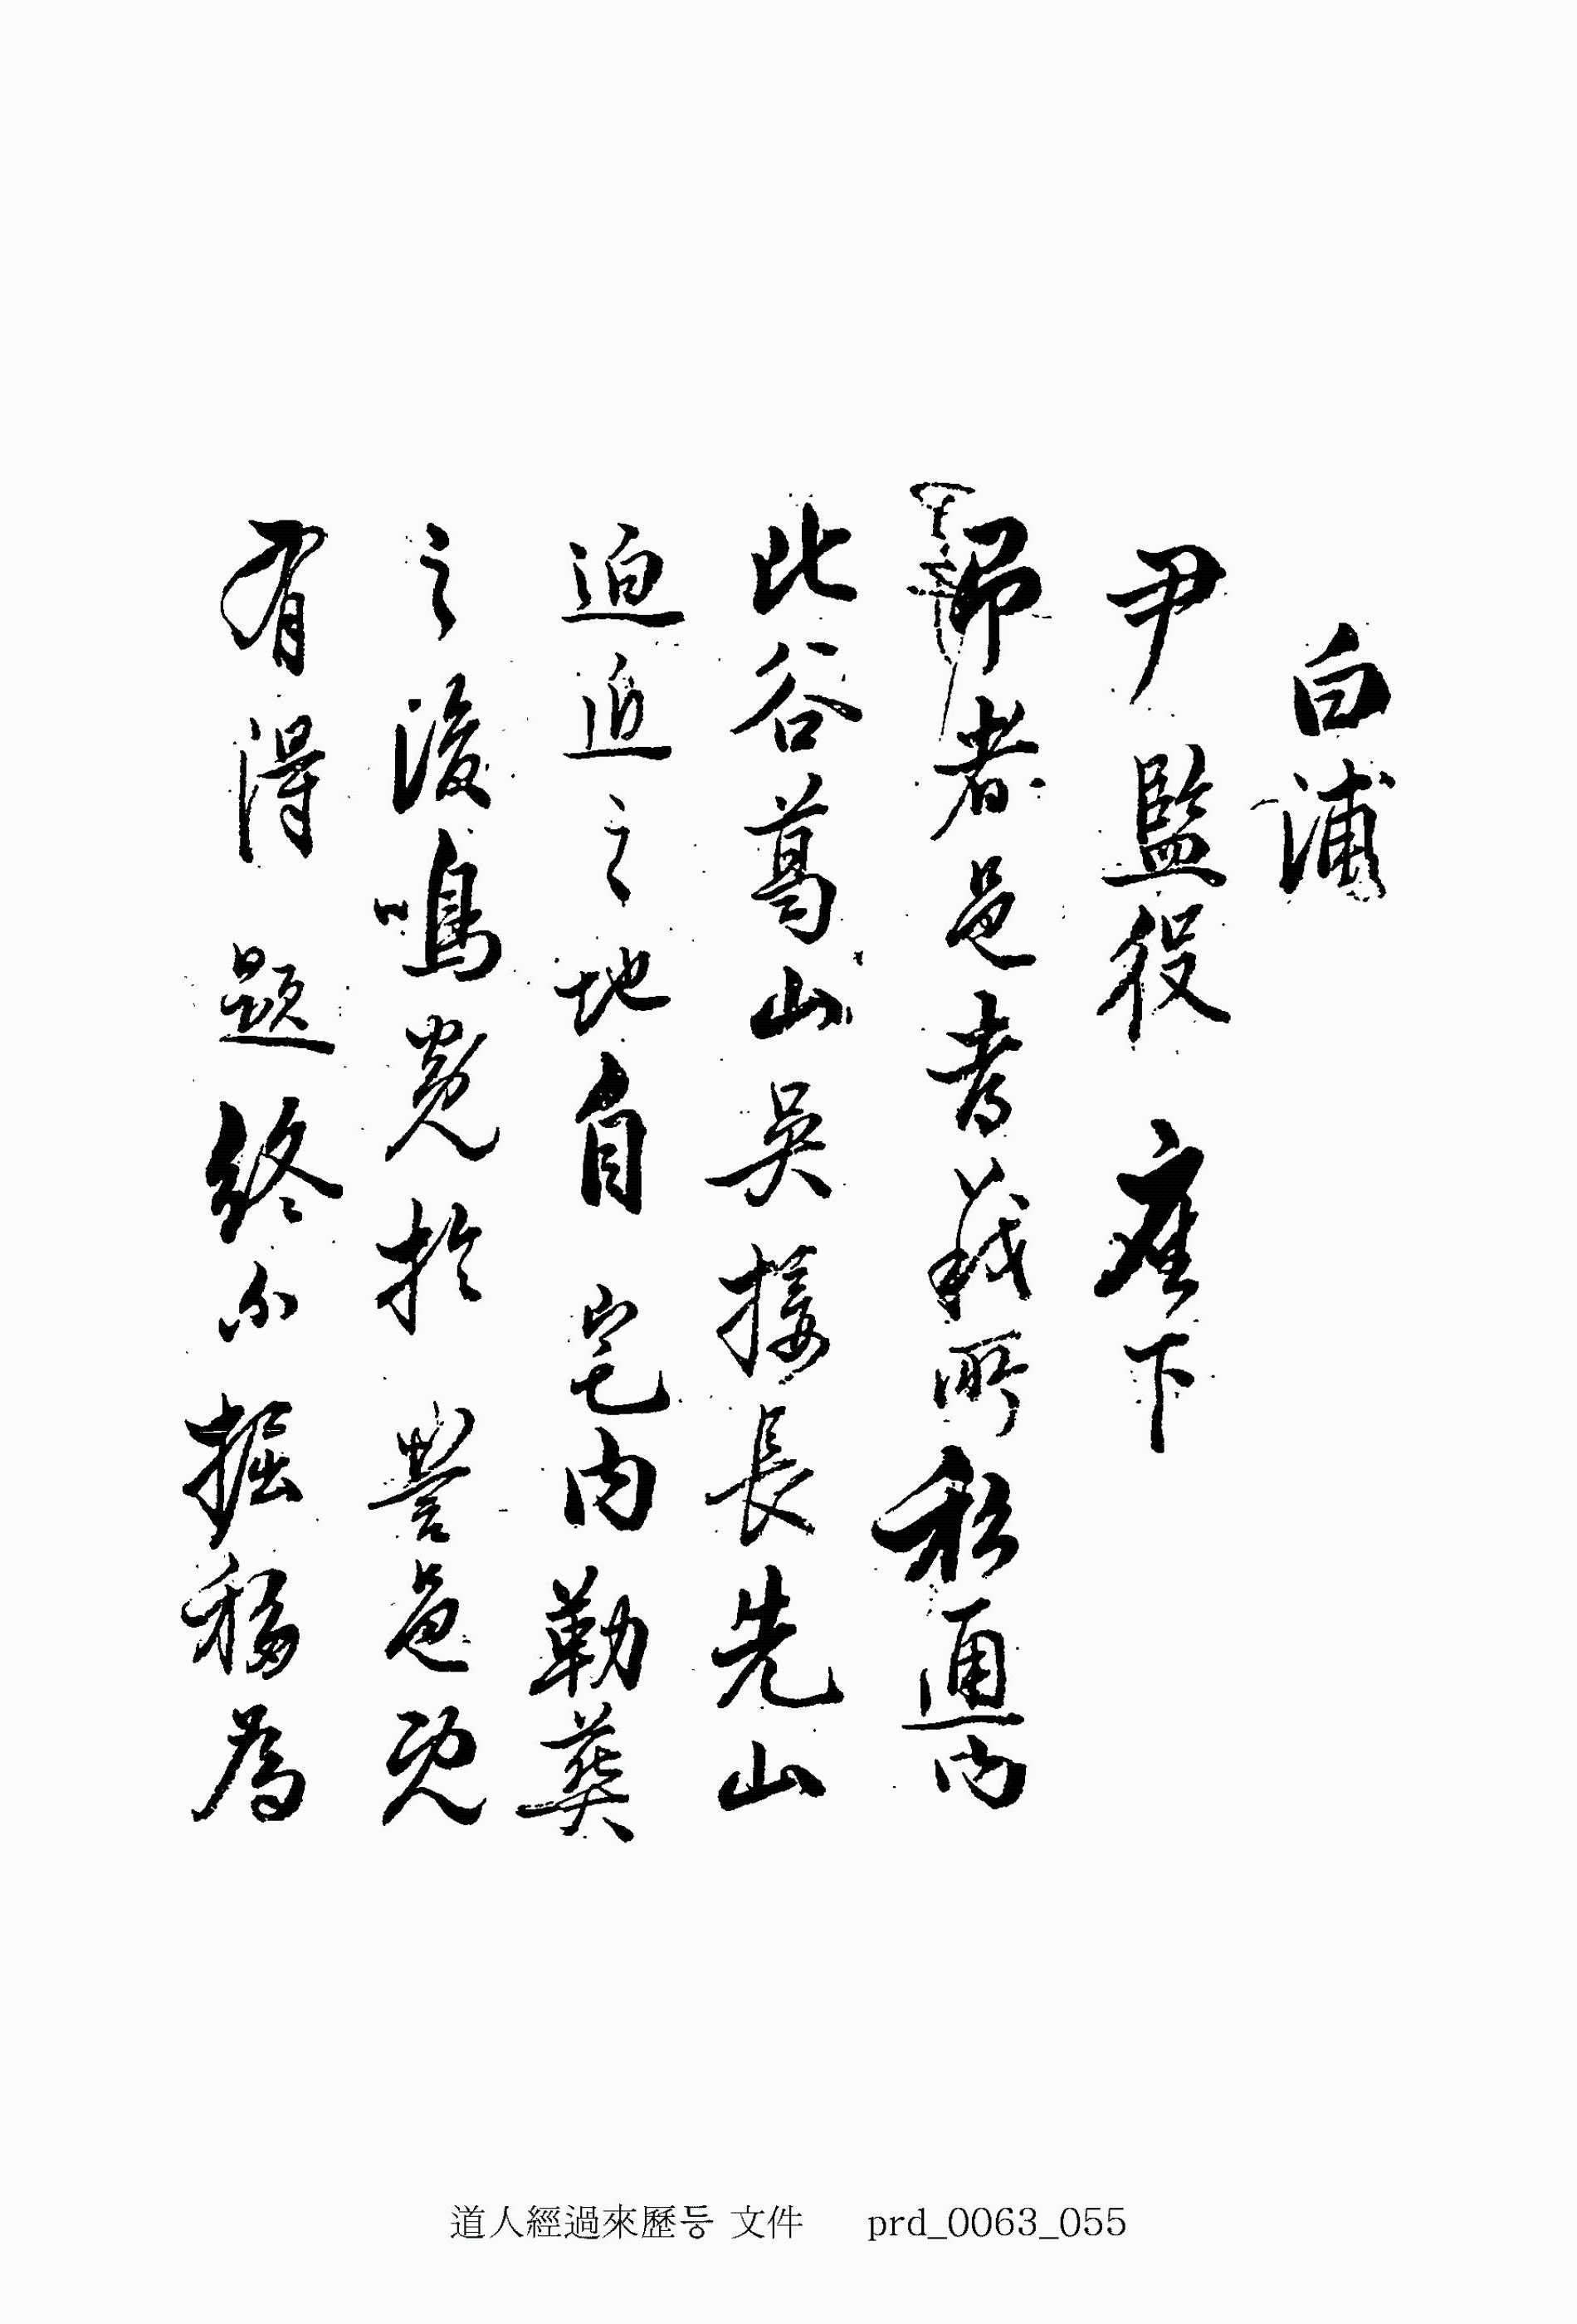 白浦
尹監役 座下
卽者邑義所私通內
此谷葛山吳接長先山
迫近之地自 宅內勒葬
之後鳴寃於 營邑旣
有得 題終不掘移爲
道人經過來歷등 文件 prd_0063_055